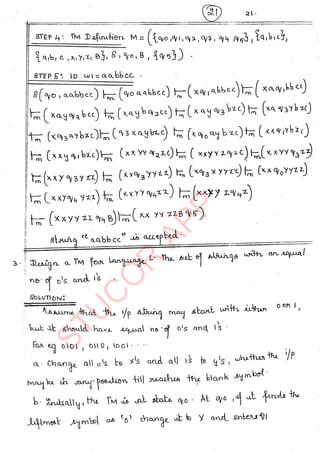 21
21.
STEP 4: TM Definition M = ({q0, q1, q2, q3, q4, q5}, {a,b,c},
{a,b,c,x,y,z,B}, δ, q0, B, {q5})
STEP 5: ID w1 = aabbcc
δ(q0, aabbcc) ⊢m (q0 aabbcc) ⊢m (xq1 abbcc) ⊢m (xaq1 bbcc)
⊢m (xayq2bcc) ⊢m (xaybq2cc) ⊢m (xayq3bzc) ⊢m (xaq3ybzc)
⊢m (xq3aybzc) ⊢m (q3xaybzc) ⊢m (xq0aybzc) ⊢m (xxq1ybzc)
⊢m (xxyq1bzc) ⊢m (xxyyq2zc) ⊢m (xxyyzq2c) ⊢m (xxyyq3zz)
⊢m (xxyq3yzz) ⊢m (xxq3yyzz) ⊢m (xq3xyyzz) ⊢m (xxq0yyzz)
⊢m (xxyq4yzz) ⊢m (xxyyq4zz) ⊢m (xxyyzq4z)
⊢m (xxyyzzq4B) ⊢m (xxyyzzBq5)
String "aabbcc" is accepted.
3. Design a TM for Language L = The set of strings with an equal
no. of 0's and 1's
SOLUTION:
Assume that the i/p string may start with either 0 or 1,
but it should have equal no. of 0's and 1's.
For eg 0101, 0110, 1001....
a. Change all 0's to x's and all 1's to y's, whether the i/p
maybe in any position till reaches the blank symbol.
b. Initially, the TM is at state q0. At q0, if it finds the
leftmost symbol as '0' change it to X and enters q1
STUCOR APP